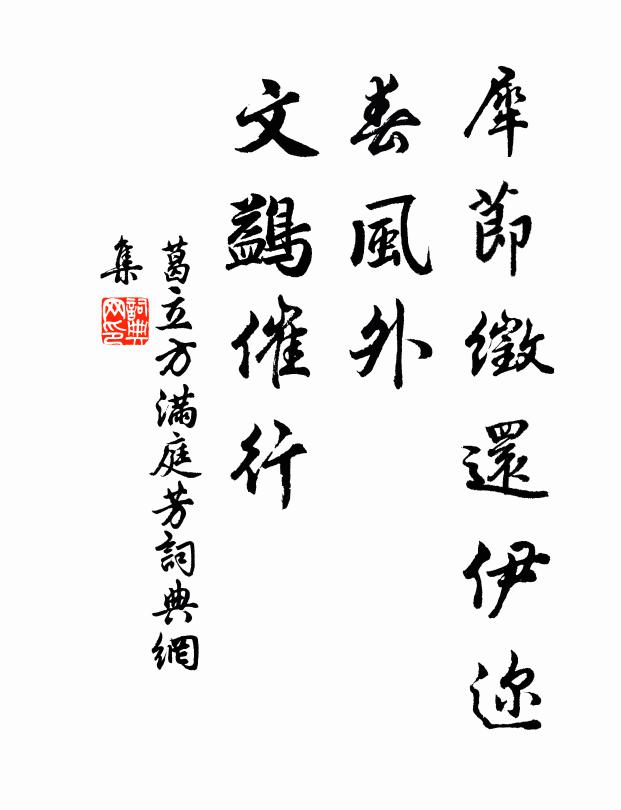 犀節徵還伊邇
春風外
文鷁催行
葛立方滿庭芳詞典網
集
詞典
网印